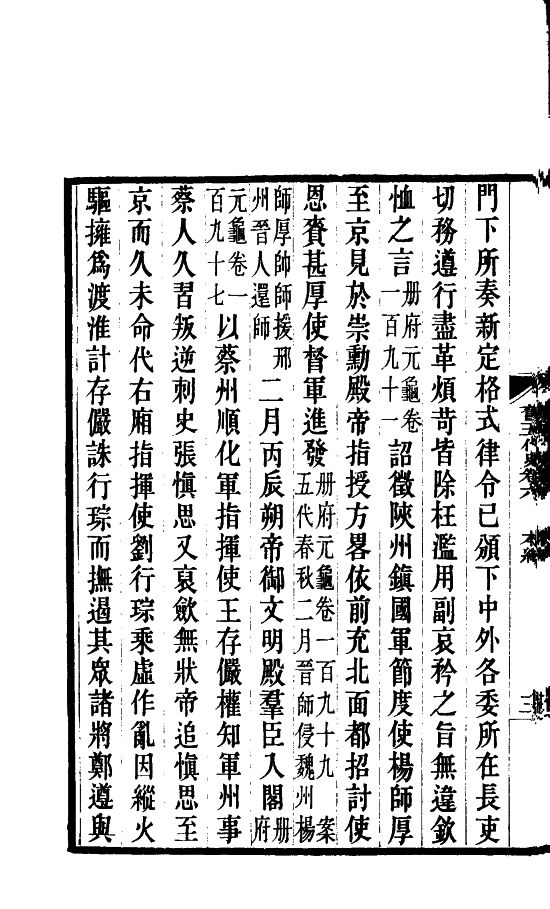 門下所奏新定格式律令已頒下中外各委所在長吏
切務遵行盡革煩苛皆除枉濫用副哀矜之旨無違欽
恤之言册府元龜卷一百九十一詔徵陝州鎮國軍節度使楊師厚
至京見於崇勳殿帝指授方畧依前充北面都招討使
恩賚甚厚使督軍進發册府元龜卷一百九十九 案五代春秋二月晉師侵魏州楊
師厚帥師援邢州晉人還師二月丙辰朔帝御文明殿羣臣入閣册府
元龜卷一百九十七以蔡州順化軍指揮使王存儼權知軍州事
蔡人久習叛逆刺史張慎思又裒斂無狀帝追慎思至
京而久未命代右廂指揮使劉行琮乘虛作亂因縱火
驅擁爲渡淮計存儼誅行琮而撫遏其眾諸將鄭遵與
舊五代史卷六
本紀
三